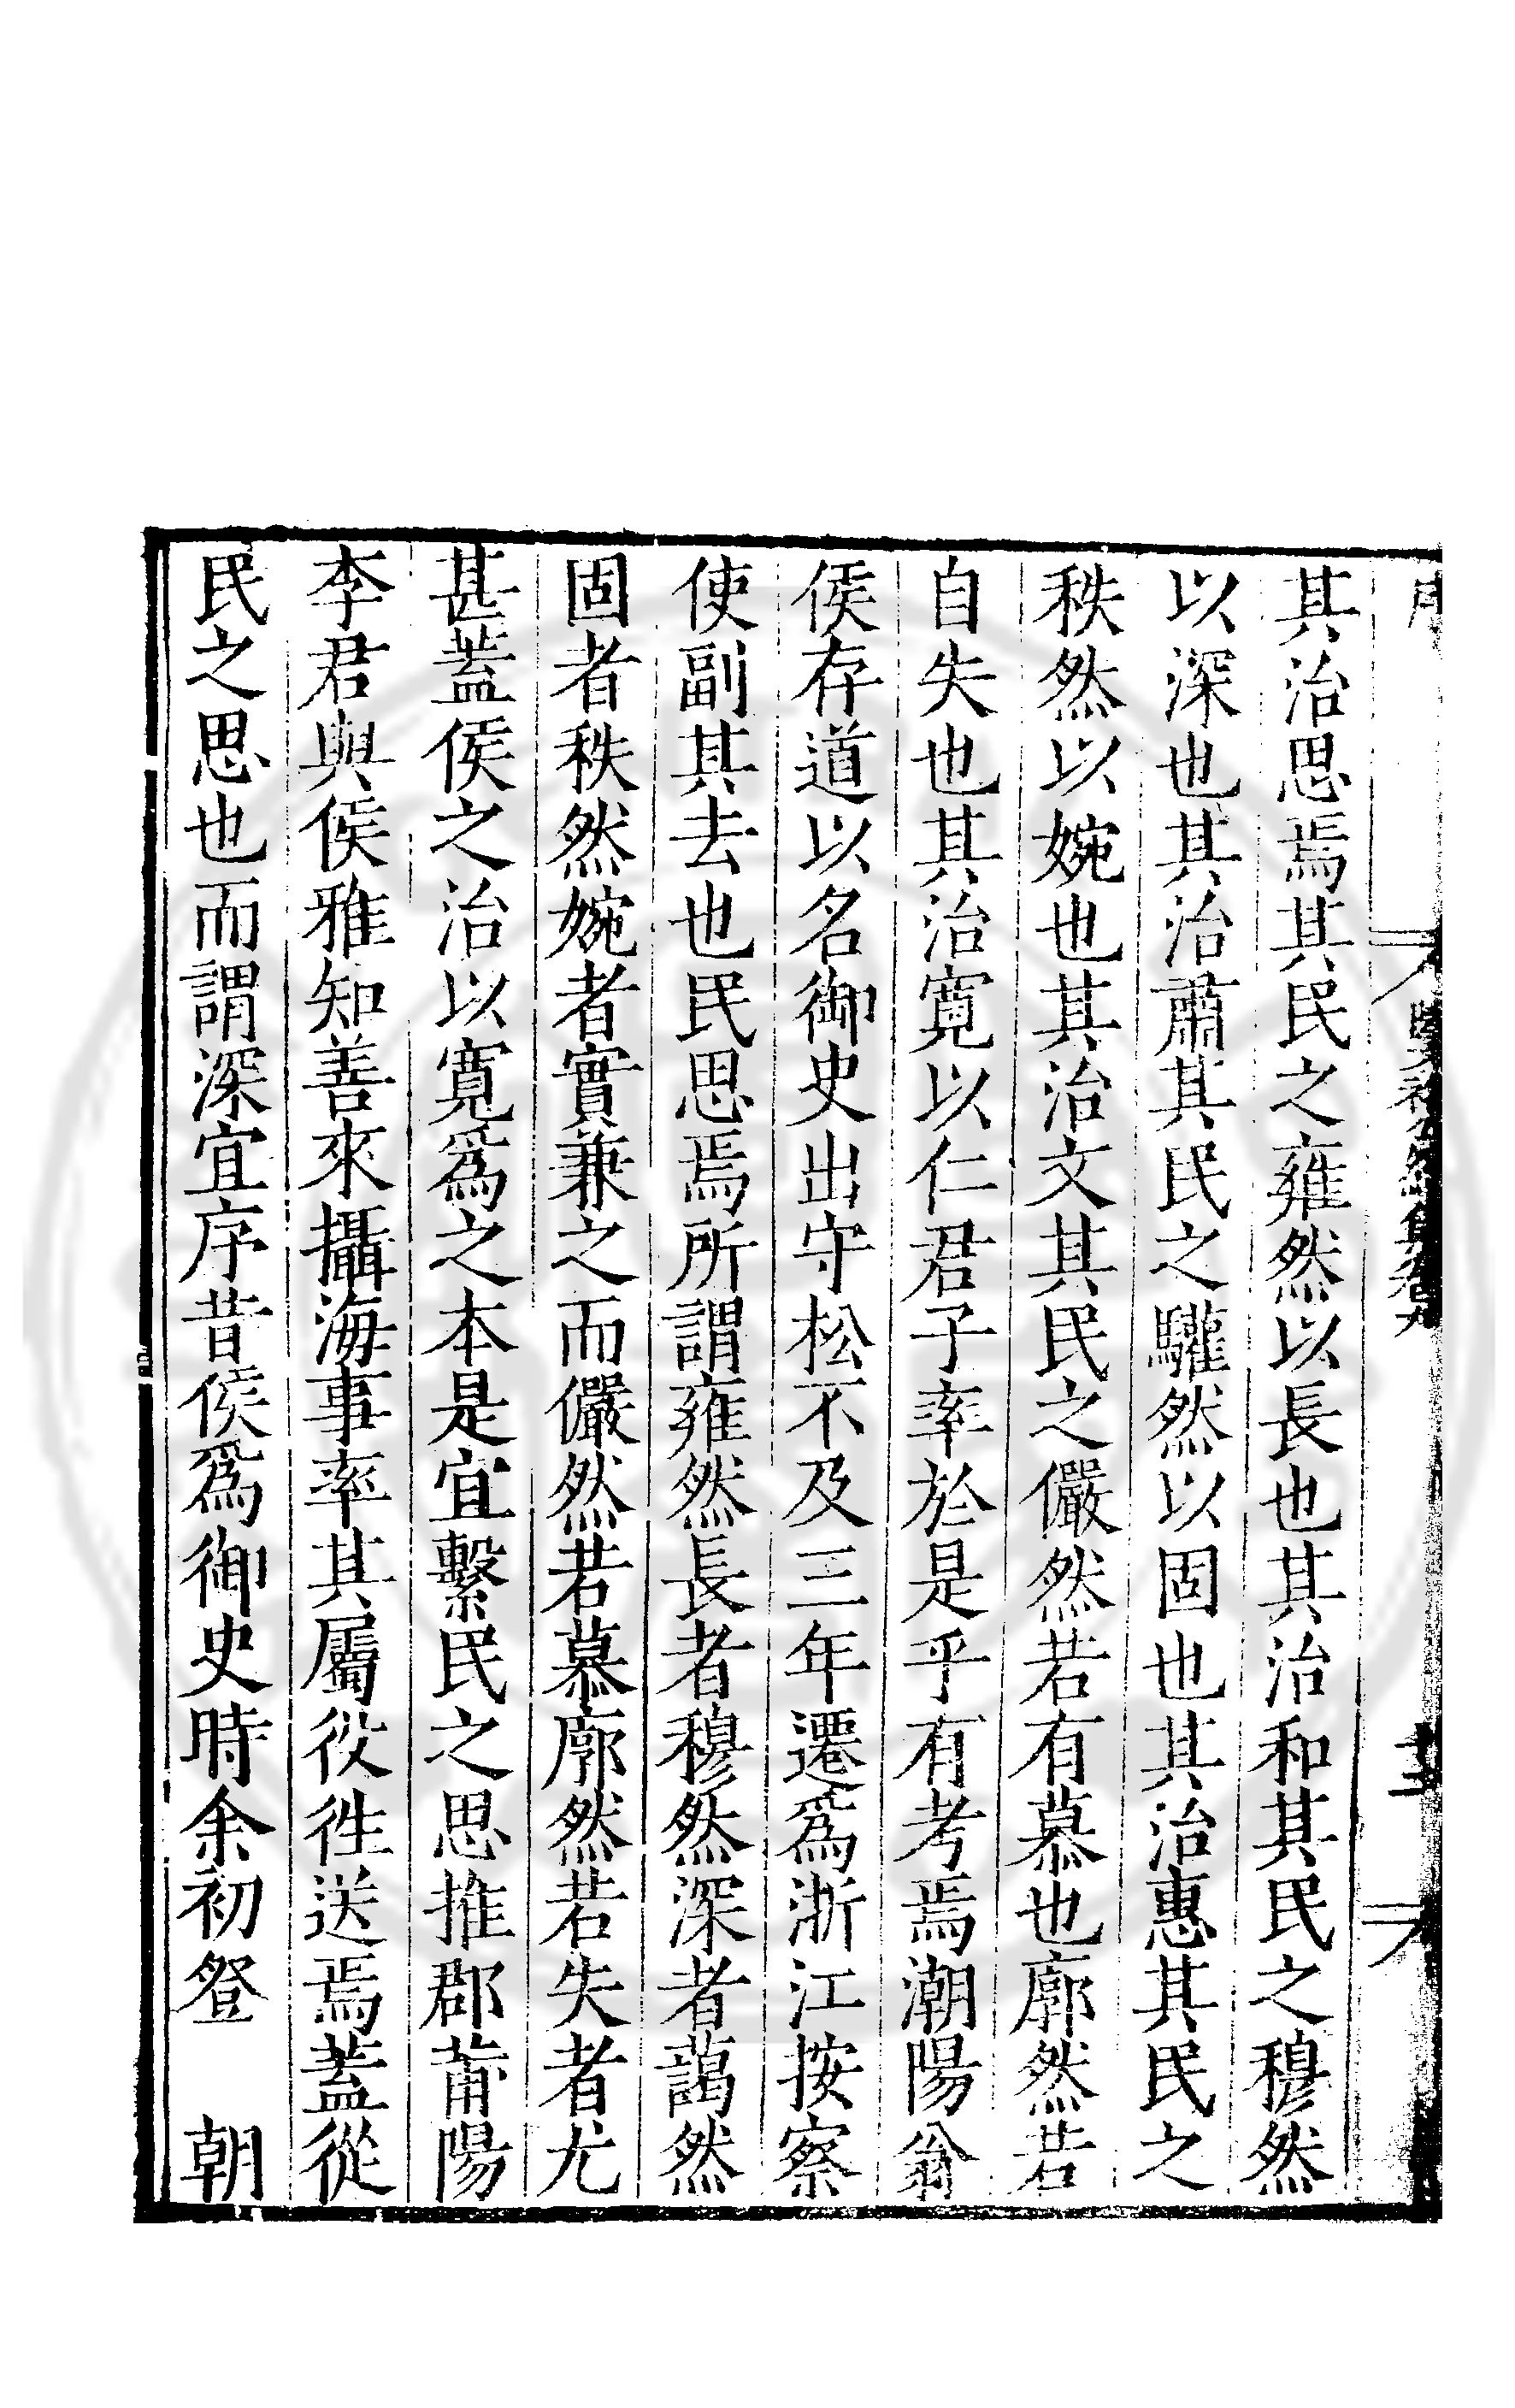 其治思焉其民之雍然以長也其治和其民之穆然
以深也其治肅其民之驩然以固也其治惠其民之
秩然以婉也其治文其民之儼然若有慕也廓然若
自失也其治寬以仁君子率於是乎有考焉潮陽翁
侯存道以名御史出守松不及三年遷爲浙江按察
使副其去也民思焉所謂雍然長者穆然深者藹然
固者秩然婉者實兼之而儼然若慕廓然若失者尤
甚蓋侯之治以寬爲之本是宜繫民之思推郡莆陽
李君與侯雅知善來攝海事率其屬役徃送焉蓋從
民之思也而謂深宜序昔侯爲御史時余初登　朝